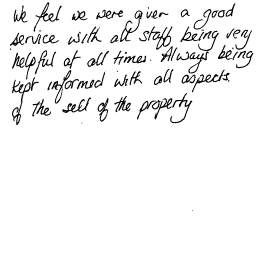 We feel we were given a good
service with all staff being very
helpful at all times. Always being
kept informed with all aspects.
of the sell of the property